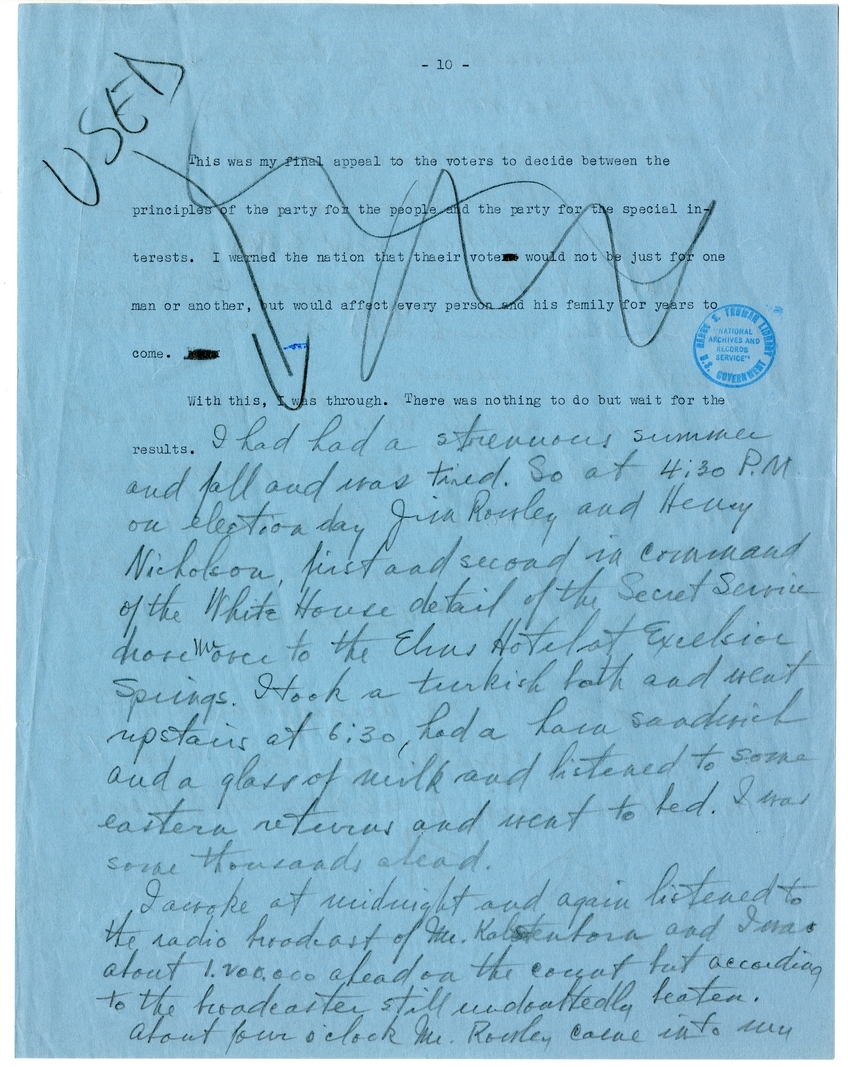 - 10 -
USED
This was my final appeal to the voters to decide between the
principles of the party for the people and the party for the special in-
terests. I warned the nation that thaeir vote would not be just for one
man or another, but would affect every person and his family for years to
come.
HARRY S. TRUMAN LIBRARY
"NATIONAL
ARCHIVES AND
RECORDS
SERVICE"
U.S. GOVERNMENT
With this, I was through. There was nothing to do but wait for the
results. I had had a strenuous summer
and fall and was tired. So at 4:30 P.M.
on election day Jim Rowley and Henry
Nicholson, first and second in command
of the White House detail of the Secret Service
drove me over to the Elms Hotel at Excelsior
Springs. I took a turkish bath and went
upstairs at 6:30, had a ham sandwich
and a glass of milk and listened to some
eastern returns and went to bed. I was
some thousands ahead.
I awoke at midnight and again listened to
the radio broadcast of Mr. Kaltenborn and I was
about 1.200.000 ahead on the count but according
to the broadcaster still undoubtedly beaten.
About four o'clock Mr. Rowley came into my